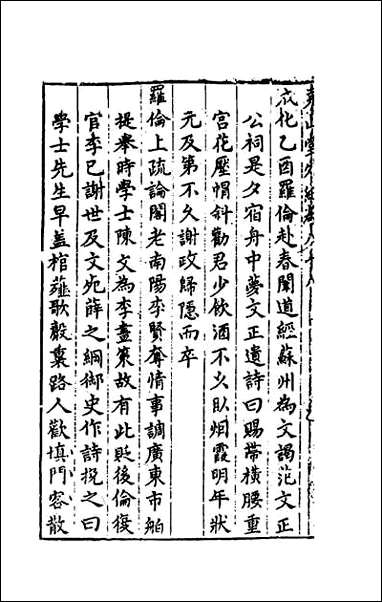 成化乙酉羅倫赴春闈道經蘇州為文謁范文正
公祠是夕宿舟中夢文正遺詩曰賜帶橫腰重
宫花壓帽斜勸君少飲酒不久臥烟霞明年狀
元及第不久謝政歸隱而卒
羅倫上疏論閣老南陽李賢奪情事調廣東市舶
提舉時學士陳文為李畫策故有此貶後倫復
官李已謝世及文宛薛之綱御史作詩挽之曰
學士先生早盖棺薤歌聲裏路人歡填門客散